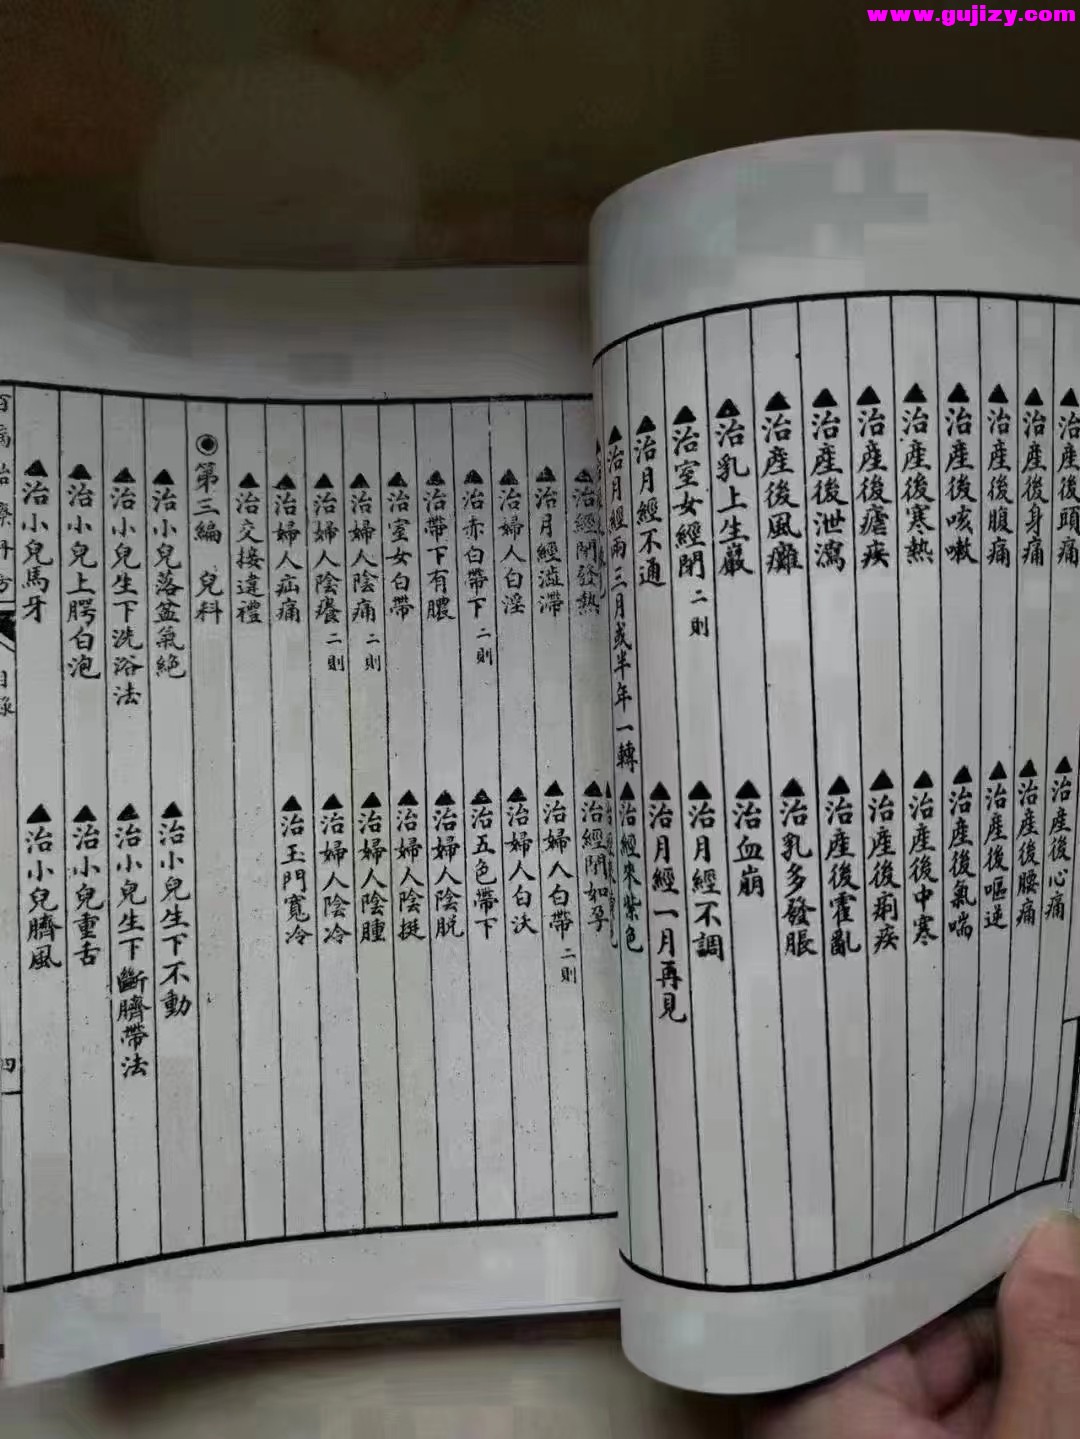 www.gujizy.com
▲治產後頭痛 ▲治產後心痛
▲治產後身痛 ▲治產後腰痛
▲治產後腹痛 ▲治產後嘔逆
▲治產後咳嗽 ▲治產後氣喘
▲治產後寒熱 ▲治產後中寒
▲治產後瘧疾 ▲治產後痢疾
▲治產後泄瀉 ▲治產後霍亂
▲治產後風癱 ▲治乳多發脹
▲治乳上生巖 ▲治血崩
▲治室女經閉二則 ▲治月經不調
▲治月經不通 ▲治月經一月再見
▲治月經兩三月或半年一轉 ▲治經來紫色
▲治經閉發熱 ▲治經閉如孕
▲治月經澁滯 ▲治婦人白帶二則
▲治婦人白淫 ▲治婦人白沃
▲治赤白帶下二則 ▲治五色帶下
▲治帶下有膿 ▲治婦人陰脫
▲治室女白帶 ▲治婦人陰挺
▲治婦人陰痛二則 ▲治婦人陰腫
▲治婦人陰癢二則 ▲治婦人陰冷
▲治婦人疝痛 ▲治玉門寬冷
▲治交接違禮
◉第三編 兒科
▲治小兒落盆氣絕 ▲治小兒生下不動
▲治小兒生下洗浴法 ▲治小兒生下斷臍帶法
▲治小兒上腭白泡 ▲治小兒重舌
▲治小兒馬牙 ▲治小兒臍風
百病治療丹方 目錄 四